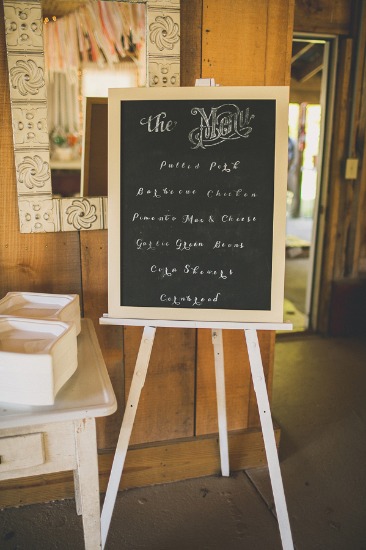 the Menu
Pulled Pork
Barbecue Chicken
Pimento Mac & Cheese
Garlic Green Beans
Corn Shewers
Cornbread